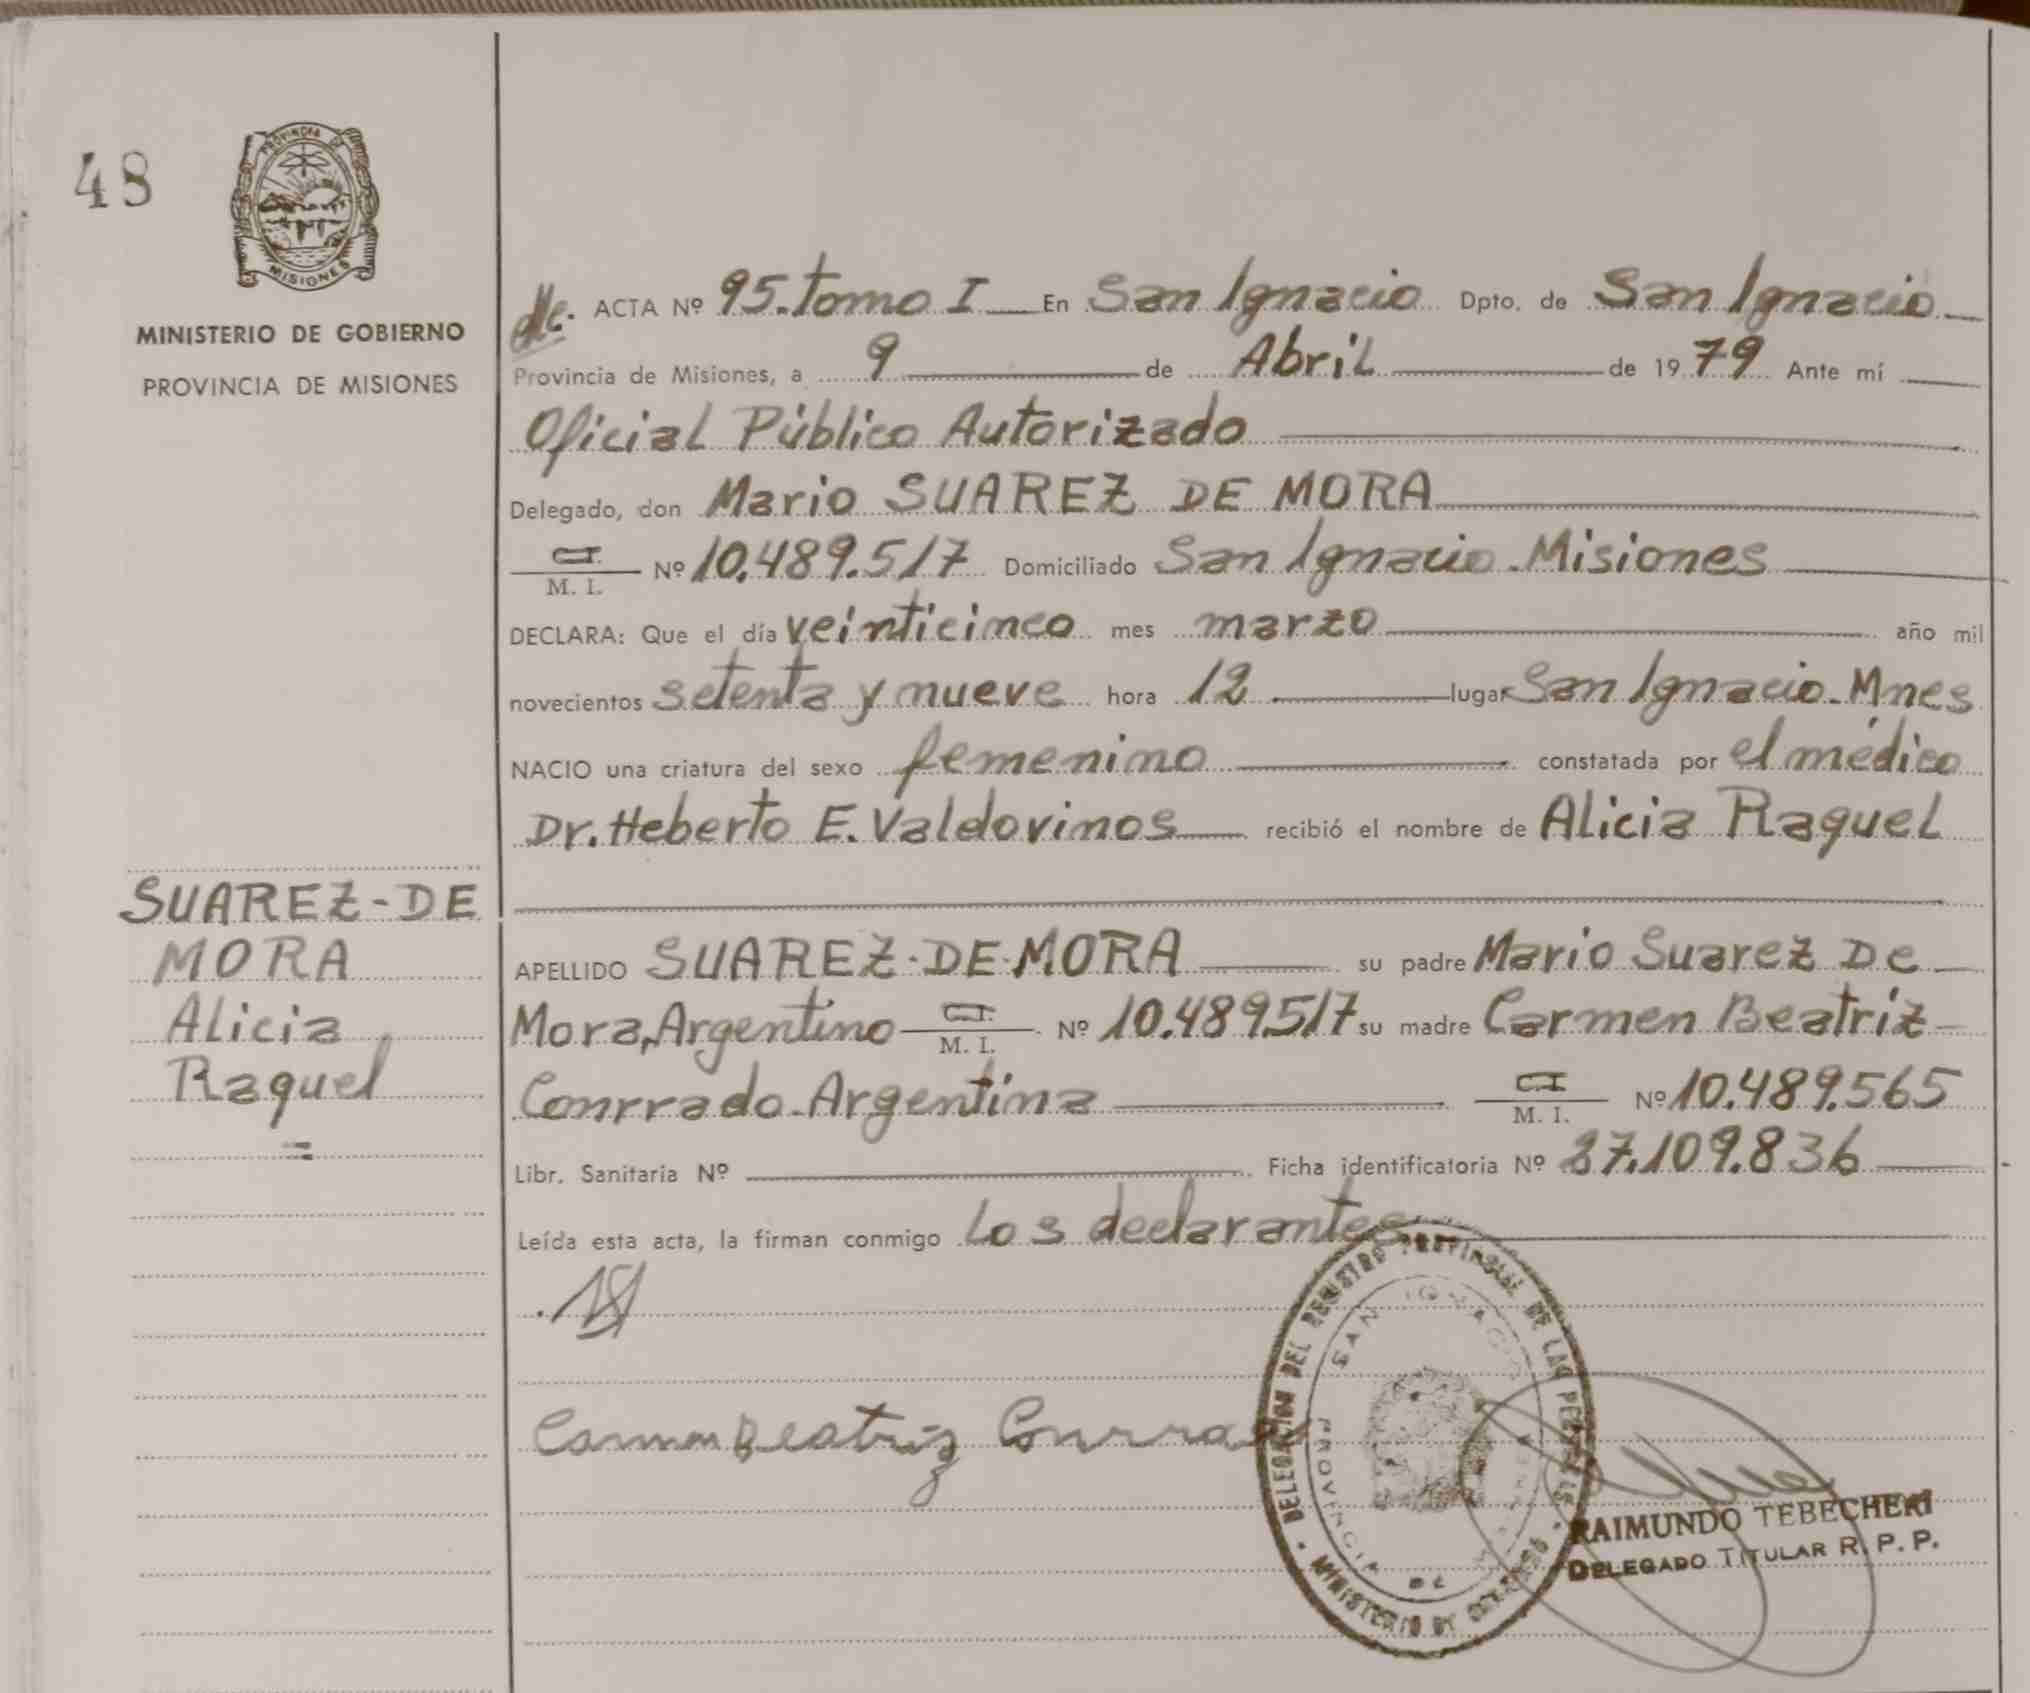 48
PROVINCIA DE
MISIONES
MINISTERIO DE GOBIERNO
PROVINCIA DE MISIONES
SUAREZ-DE
MORA
Alicia
Raquel
ACTA Nº 95.tomo I En San Ignacio Dpto. de San Ignacio
Provincia de Misiones, a 9 de Abril de 1979 Ante mí
Oficial Público Autorizado
Delegado, don Mario SUAREZ DE MORA
C.I.
M. I. Nº 10.489.517 Domiciliado San Ignacio. Misiones
DECLARA: Que el día veinticinco mes marzo año mil
novecientos setenta y nueve hora 12 lugar San Ignacio. Mnes
NACIO una criatura del sexo femenino constatada por el médico
Dr. Heberto E. Valdovinos recibió el nombre de Alicia Raquel
APELLIDO SUAREZ-DE-MORA su padre Mario Suarez De
Mora, Argentino C.I. M. I. Nº 10.489.517 su madre Carmen Beatriz
Conrrado. Argentina C.I. M. I. Nº 10.489.565
Libr. Sanitaria Nº Ficha identificatoria Nº 27.109.836
Leída esta acta, la firman conmigo Los declarantes
Carmen Beatriz Conrrado
DELEGACION DEL REGISTRO PROVINCIAL DE LAS PERSONAS
MINISTERIO DE GOBIERNO
SAN IGNACIO
PROVINCIA DE MISIONES
RAIMUNDO TEBECHERI
DELEGADO TITULAR R. P. P.